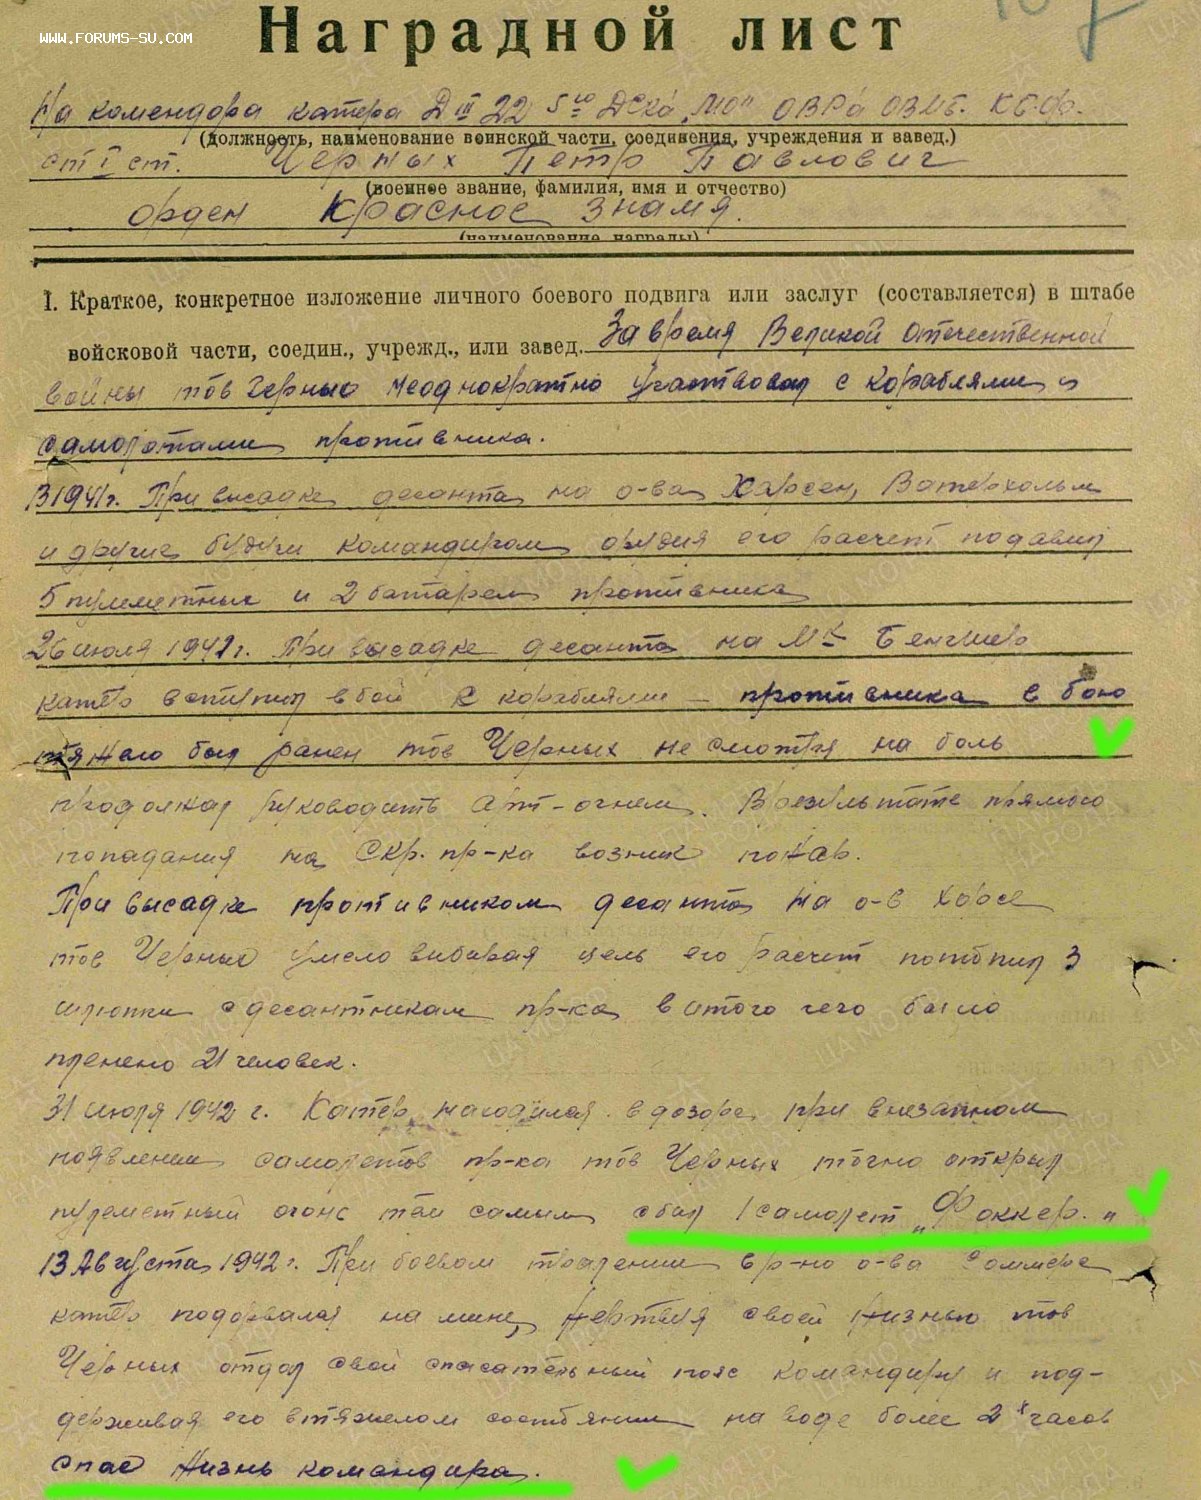 WWW.FORUMS-SU.COM
Наградной лист
На комендора катера Д III 22 5го ДСКа "МО" ОВРа ОВМб. КБФ.
(должность, наименование воинской части, соединения, учреждения и завед.)
ст I ст. Черных Петр Павлович
(военное звание, фамилия, имя и отчество)
орден Красное знамя.
(наименование награды)
I. Краткое, конкретное изложение личного боевого подвига или заслуг (составляется) в штабе
войсковой части, соедин., учрежд., или завед. За время Великой отечественной
войны тов Черных неоднократно участвовал с кораблями и
самолетами противника.
В 1941г. При высадке десанта на о-ва Харсен, Ватерхольм
и другие будучи командиром орудия его расчет подавил
5 пулеметных и 2 батареи противника
26 июля 1941г. При высадке десанта на Мк Бенгшер
катер вступил в бой с кораблями противника в бою
тяжело был ранен тов Черных не смотря на боль
продолжал руководить арт-огнем. В результате прямого
попадания на Скр. пр-ка возник пожар.
При высадке противником десанта на о-в Хорсе
тов Черных умело выбирая цель его расчет потопил 3
шлюпки с десантникам пр-ка в итого чего было
пленено 21 человек.
31 июля 1942 г. Катер находился в дозоре, при внезапном
появлении самолетов пр-ка тов Черных точно открыл
пулеметный огонь тем самым сбил 1 самолет "Фоккер."
13 Августа 1942г. При боевом тралении в р-но о-ва Соммерс
катер подорвался на мине, жертвуя своей жизнью тов
Черных отдал свой спасательный пояс командиру и под-
держивая его в тяжелом состоянии на воде более 2х часов
спас жизнь командира.